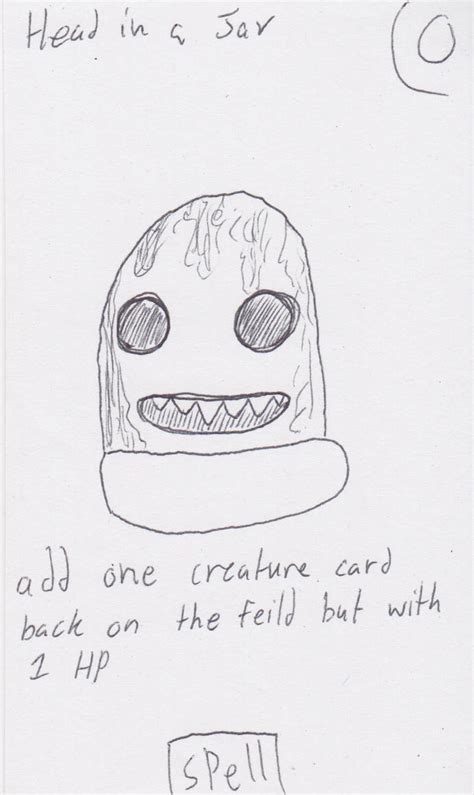 Head in a Jar
0
add one creature card
back on the feild but with
1 HP
spell